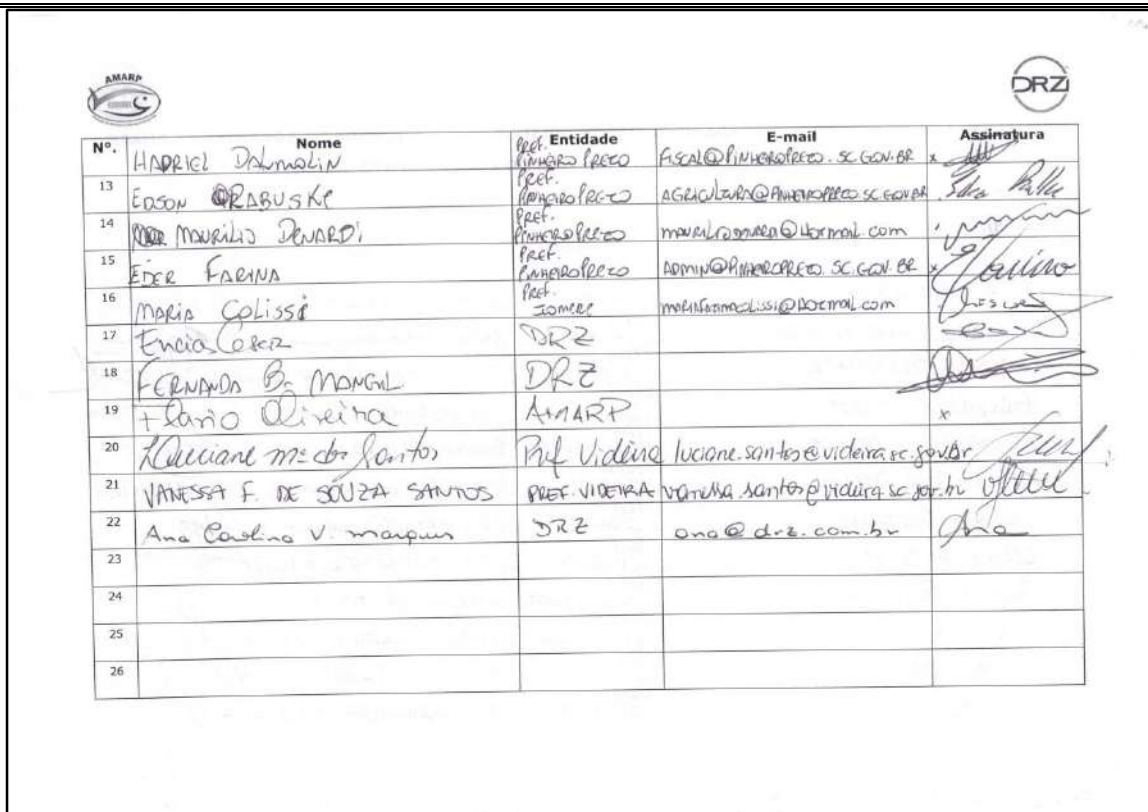 AMARP
DRZ
Nº. Nome Entidade E-mail Assinatura
HADRIEL DALMOLIN Pref. Pinheiro Preto FISCAL@PINHEIROPRETO.SC.GOV.BR x
13 EDSON RABUSKE Pref. Pinheiro Preto AGRICULTURA@PINHEIROPRETO.SC.GOV.BR
14 MAURILIO DENARDI Pref. Pinheiro Preto @HOTMAIL.COM
15 EDER FARINA Pref. Pinheiro Preto ADMIN@PINHEIROPRETO.SC.GOV.BR x
16 MARIA COLISSI Pref. IOMERE @HOTMAIL.COM
17 DRZ
18 FERNANDA B. DRZ
19 Flavio Oliveira AMARP x
20 Luciane Mª dos Santos Pref Videira luciane.santos@videira.sc.gov.br
21 VANESSA F. DE SOUZA SANTOS PREF. VIDEIRA vanessa.santos@videira.sc.gov.br
22 Ana Carolina V. Marques DRZ ana@drz.com.br Ana
23
24
25
26